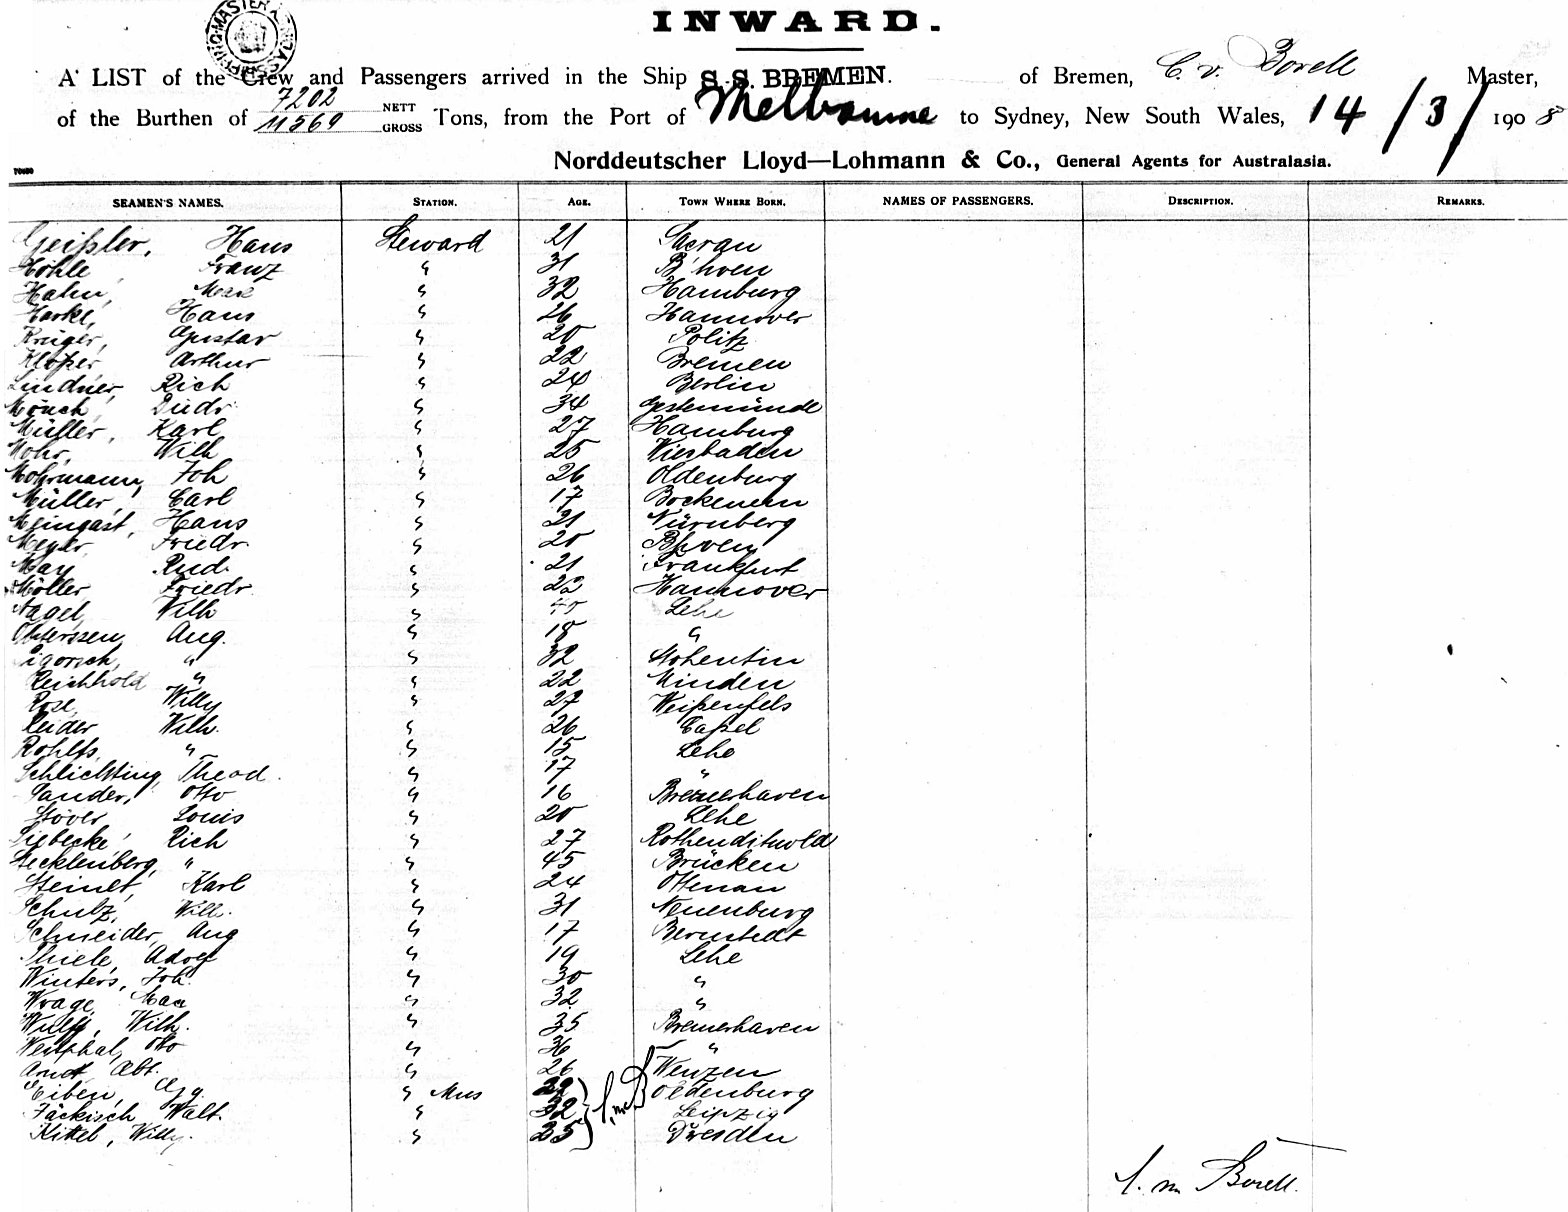 INWARD.
A LIST of the Crew and Passengers arrived in the Ship S.S. BREMEN. of Bremen, C. v. Borell Master,
of the Burthen of 7202 11569 NETT GROSS Tons, from the Port of Melbourne to Sydney, New South Wales, 14/3/1908
Norddeutscher Lloyd—Lohmann & Co., General Agents for Australasia.
SEAMEN'S NAMES. STATION. AGE. TOWN WHERE BORN. NAMES OF PASSENGERS. DESCRIPTION. REMARKS.
Geißler, Hans Steward 21 Sacrau
Höhle, Franz " 31 B'hven
Hahn, Max " 32 Hamburg
Harke, Hans " 26 Hannover
Krüger, Gustav " 20 Politz
Klöper, Arthur " 22 Bremen
Lindner, Rich " 24 Berlin
Mönch, Diedr. " 34 Gestemünde
Müller, Karl " 27 Hamburg
Mohr, Wilh " 25 Wiesbaden
Mohrmann, Joh " 26 Oldenburg
Müller, Carl " 17 Bockenem
Meingast, Hans " 21 Nürnberg
Meyer, Friedr. " 20 Bhven
May Rud. " 21 Frankfurt
Möller Friedr. " 22 Hannover
Nagel, Wilh " 40 Lehe
Aug. " 18 "
Pigorsch, " " 32 Stohentin
Reichhold " " 22 Minden
Rose, Willy " 27 Weißenfels
Reider Wilh. " 26 Caßel
Rohlfs, " " 15 Lehe
Schlichting, Theod. " 17 "
Sander, Otto " 16 Bremerhaven
Stöver Louis " 20 Lehe
Siebecke, Rich " 27 Rothenditmold
Stecklenberg, " " 45 Brücken
Steinet, Karl " 24 Ottenau
Schulz, Wilh. " 31 Neuenburg
Schneider, Aug " 17 Bernstedt
Thiele, Adolf " 19 Lehe
Winters, Joh. " 30 "
Wrage, Max " 32 "
Wulff, Wilh. " 35 Bremerhaven
Westphal, Otto " 36 "
Arndt Alb. " 26 Wenzen
Eiben, Gg. " Mus 29 Oldenburg
Jäckisch Walt. " 32 Leipzig
Kittel, Willy. " 25 Dresden
Borell.